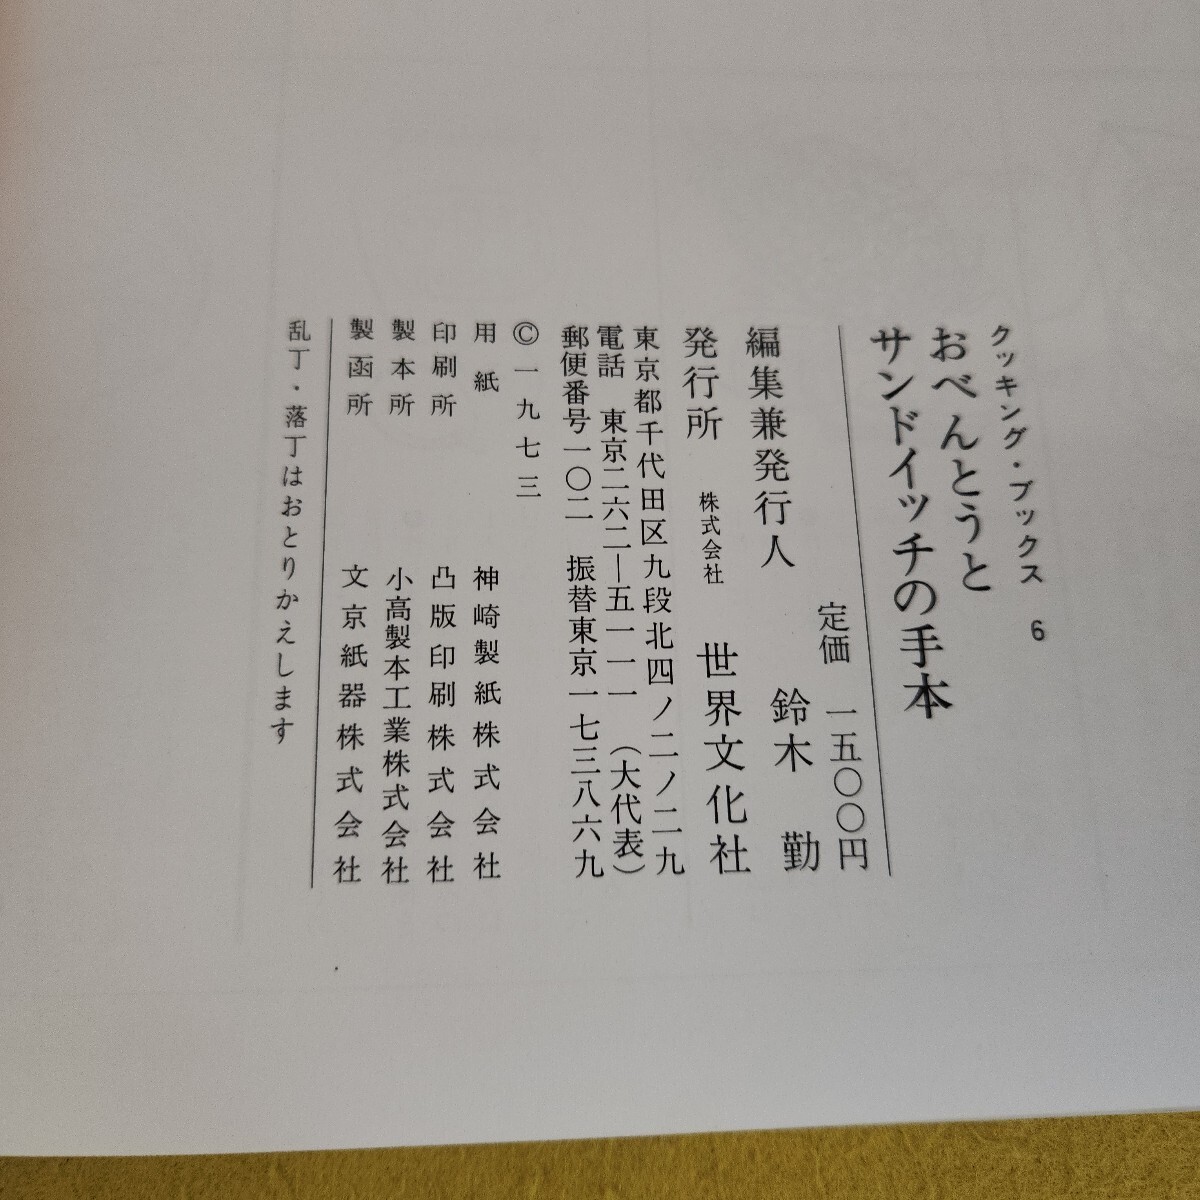 クッキング・ブックス 6
おべんとうと
サンドイッチの手本
定価 一五〇〇円
編集兼発行人 鈴木 勤
発行所 株式会社 世界文化社
東京都千代田区九段北四ノ二ノ二九
電話 東京二六二―五一一一（大代表）
郵便番号一〇二 振替東京一七三八六九
©一九七三
用紙 神崎製紙株式会社
印刷所 凸版印刷株式会社
製本所 小高製本工業株式会社
製函所 文京紙器株式会社
乱丁・落丁はおとりかえします